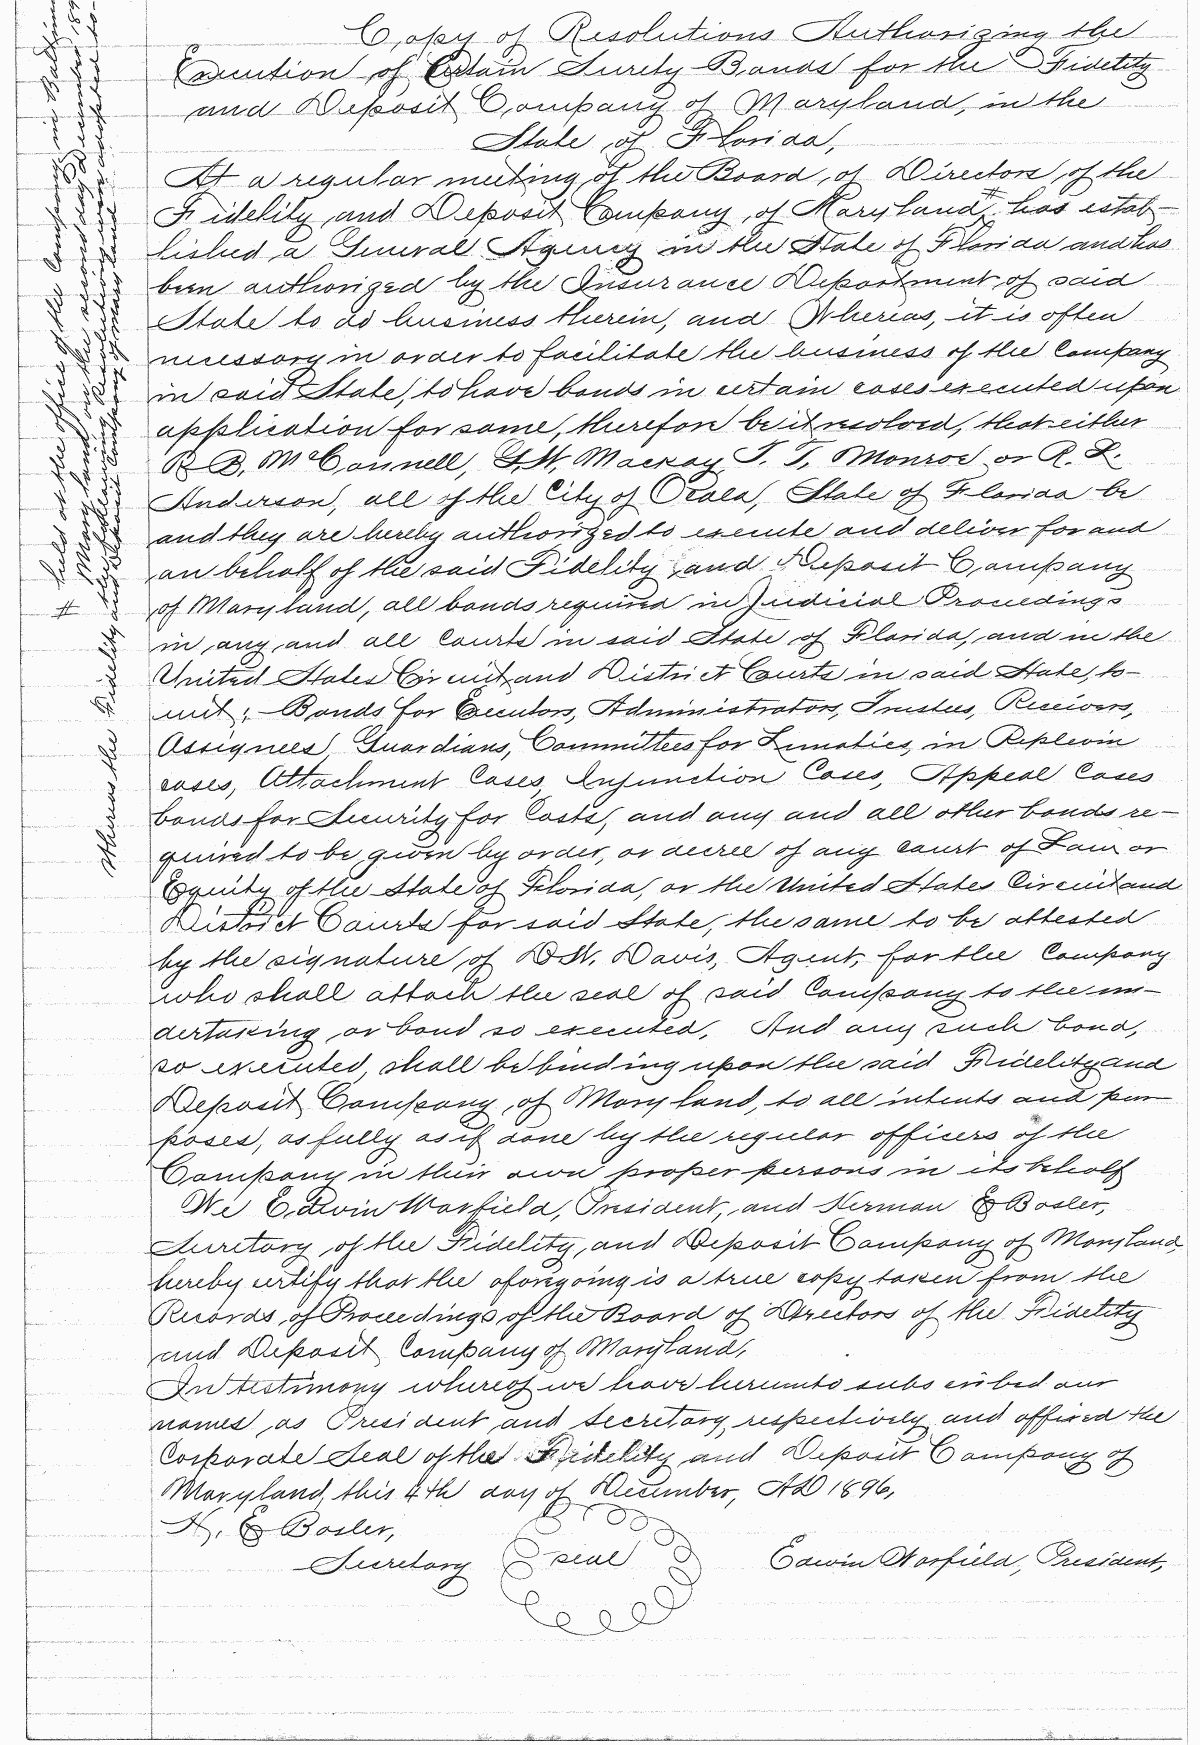 Copy of Resolutions Authorizing the
Execution of Certain Surety Bonds for the Fidelity
and Deposit Company of Maryland, in the
State of Florida,
At a regular meeting of the Board, of Directors, of the
Fidelity and Deposit Company, of Maryland # has estab-
lished a General Agency in the State of Florida and has
been authorized by the Insurance Department of said
State to do business therein, and Whereas, it is often
necessary in order to facilitate the business of the Company
in said State, to have bonds in certain cases executed upon
application for same, therefore be it resolved, that either
R B. McConnell, G. W. Mackay T. T. Monroe or R. L.
Anderson, all of the City of Ocala, State of Florida be
and they are hereby authorized to execute and deliver for and
on behalf of the said Fidelity and Deposit Company
of Maryland, all bonds required in Judicial Proceedings
in any and all Courts in said State of Florida, and in the
United States Circuit and District Courts in said State, to-
wit; Bonds for Executors, Administrators, Trustees, Receivers,
Assignees, Guardians, Committees for Lunatics, in Replevin
cases, Attachment Cases, Injunction Cases, Appeal Cases
bonds for Security for Costs, and any and all other bonds re-
quired to be given by order, or decree of any court of Law or
Equity of the State of Florida, or the United States Circuit and
District Courts for said State, the same to be attested
by the signature of D. W. Davis, Agent, for the Company
who shall attach the seal of said Company to the un-
dertaking or bond so executed, And any such bond,
so executed, shall be binding upon the said Fidelity and
Deposit Company, of Maryland, to all intents and pur
poses, as fully as if done by the regular officers of the
Company in their own proper persons in its behalf
We Edwin Warfield, President, and Herman E Bosler,
Secretary, of the Fidelity, and Deposit Company of Maryland,
hereby certify that the aforegoing is a true copy taken from the
Records, of Proceedings of the Board of Directors of the Fidelity
and Deposit Company of Maryland,
In testimony whereof we have hereunto subscribed our
names, as President and Secretary, respectively and affixed the
Corporate Seal of the Fidelity and Deposit Company of
Maryland, this 4th day of December, AD 1896,
H. E Bosler,
Secretary
seal
Edwin Warfield, President,
# held at the office of the Company, in
Maryland, on the
Whereas the Fidelity and